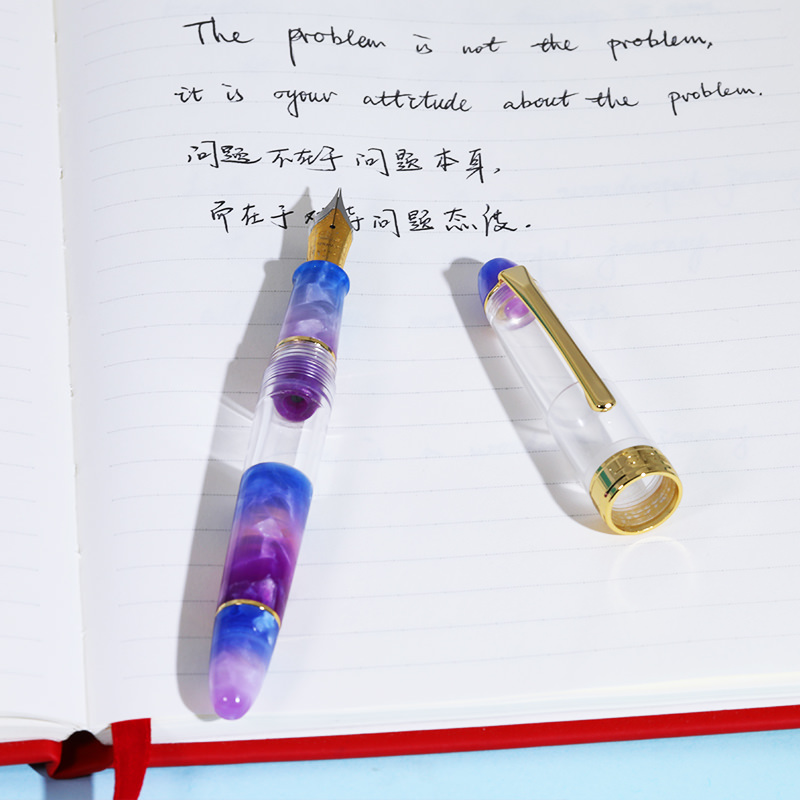 The problem is not the problem,
it is your attitude about the problem.
问题不在于问题本身，
而在于对待问题态度.